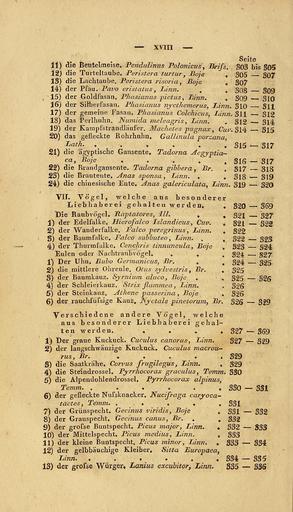 — XVIII —
Seite
11) die Beutelmeise. Pendulinus Polonicus, Briss. 303 bis 305
12) die Turteltaube. Peristera turtur, Boje . 305 — 307
13) die Lachtaube. Peristera risoria, Boje . 307
14) der Pfau. Pavo cristatus, Linn. . . 308 — 309
15) der Goldfasan. Phasianus pictus, Linn. . 309 — 310
16) der Silberfasan. Phasianus nycthemerus, Linn. 310 — 311
17) der gemeine Fasan. Phasianus Colchicus, Linn. 311 — 312
18) das Perlhuhn. Numida meleagris, Linn. . 312 — 314
19) der Kampfstrandläufer. Machetes pugnax, Cuv. 314 — 315
20) das gefleckte Rohrhuhn. Gallinula porzana,
Lath. . . . . . 315 — 317
21) die ägyptische Gansente. Tadorna Aegyptia-
ca, Boje . . . . . 316 — 317
22) die brandgansente. Tadorna gibbera, Br. . 317 — 318
23) die Brautente. Anas sponsa, Linn. . . 318 — 319
24) die chinesische Ente. Anas galericulata, Linn. 319 — 320
VII. Vögel, welche aus besonderer
Liebhaberei gehalten werden. . 320 — 369
Die Raubvögel. Raptatores, Ill. . . 321 — 327
1) der Edelfalke. Hierofalco Islandicus, Cuv. . 321 — 322
2) der Wanderfalke. Falco peregrinus, Linn. . 322
3) der Baumfalke. Falco subbuteo, Linn. . . 322 — 323
4) der Thurmfalke. Cerchneis tinnuncula, Boje . 323 — 324
Eulen oder Nachtraubvögel. . . 324 — 327
1) der Uhu, Bubo Germanicus, Br. . . 324 — 325
2) die mittlere Ohreule. Otus sylvestris, Br. . 325
3) der Baumkauz. Syrnium aluco, Boje . . 325 — 326
4) der Schleierkauz. Strix flammea, Linn. . 326
5) der Steinkauz. Athene passerina, Boje . 326
6) der rauchfüßige Kauz, Nyctale pinetorum, Br. 326 — 329
Verschiedene andere Vögel, welche
aus besonderer Liebhaberei gehal-
ten werden. . . . . 327 — 369
1) Der graue Kuckuck. Cuculus canorus, Linn. . 327 — 329
2) der langschwänzige Kuckuck. Cuculus macrou-
rus, Br. . . . . . 329
3) die Saatkrähe. Corvus frugilegus, Linn. . 329
4) die Steindrossel. Pyrrhocorax graculus, Temm. 330
5) die Alpendohlendrossel. Pyrrhocorax alpinus,
Temm. . . . . . 330 — 331
6) der gefleckte Nußknacker. Nucifraga caryoca-
tactes, Temm. . . . . 331
7) der Grünspecht. Gecinus viridis, Boje . 331 — 332
8) der Grauspecht. Gecinus canus, Br. . . 332
9) der große Buntspecht. Picus major, Linn. . 332 — 333
10) der Mittelspecht. Picus medius, Linn. . 333
11) der kleine Buntspecht. Picus minor, Linn. . 333 — 334
12) der gelbbäuchige Kleiber. Sitta Europaea,
Linn. . . . . . 334 — 335
13) der große Würger. Lanius excubitor, Linn. . 335 — 336